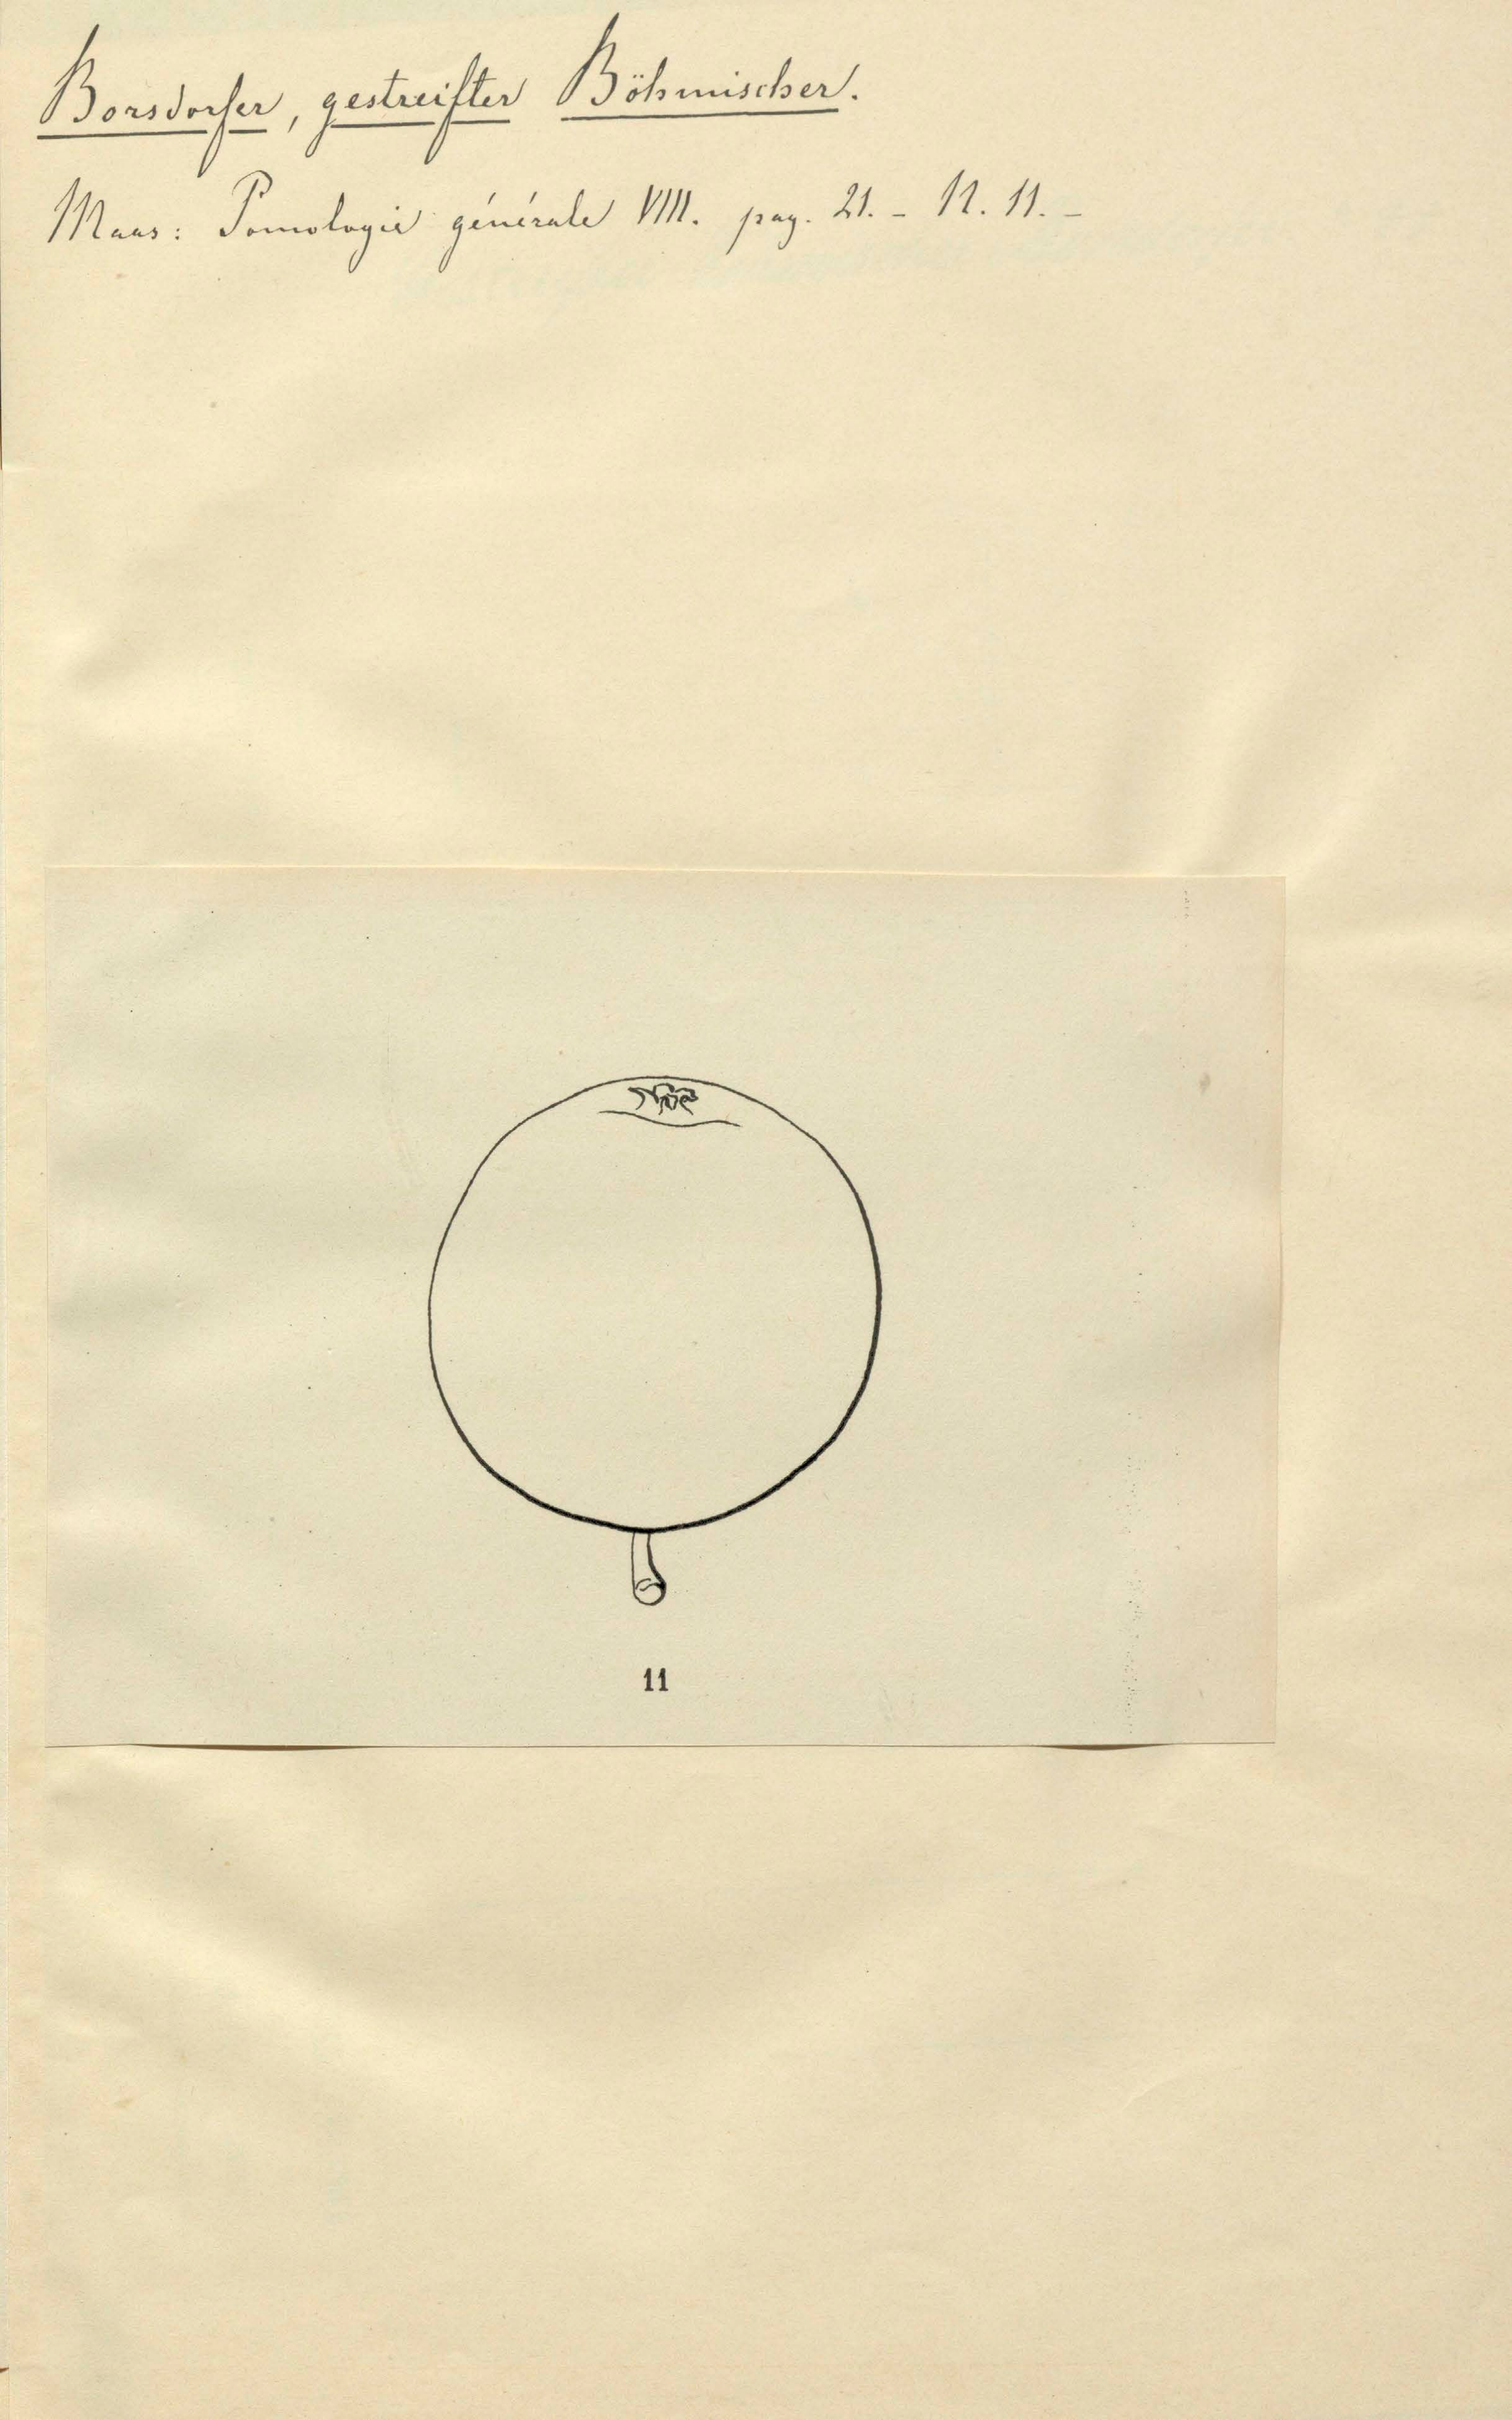 Borsdorfer, gestreifter Böhmischer.
Maas: Pomologie générale VIII. pag. 21. - N. 11. -
11